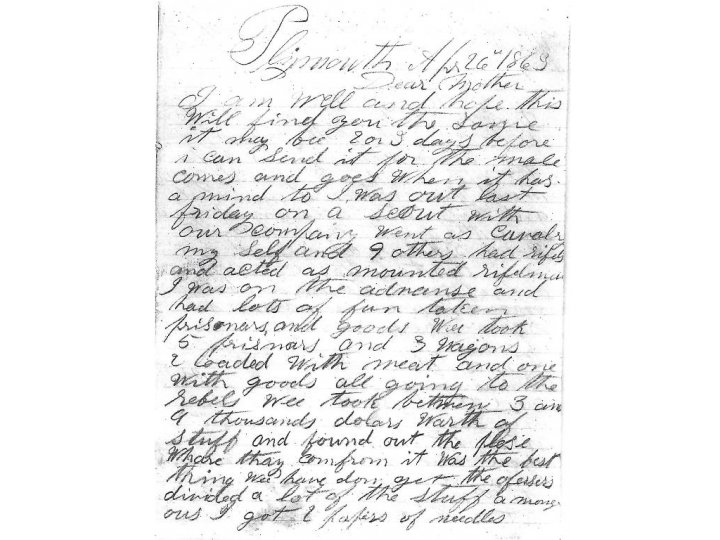 Plymouth Apr 26" 1863
Dear Mother
I am well and hope this
will find you the same
it may bee 2 or 3 days before
i can send it for the male
comes and goes when it has
a mind to I was out last
friday on a scout with
our company went as Cavalr
my self and 9 others had rifels
and acted as mounted rifelmen
I was on the advanse and
had lots of fun taken
prisonars and goods Wee took
5 prisnars and 3 wagons
2 loaded with meat and one
with goods all going to the
rebels wee took between 3 an
4 thousands dolars warth of
stuff and found out the plase
Whare thay comfrom it was the best
thing wee have don yet the ofersers
divided a lot of the stuff a mong
ous I got 2 papers of needles